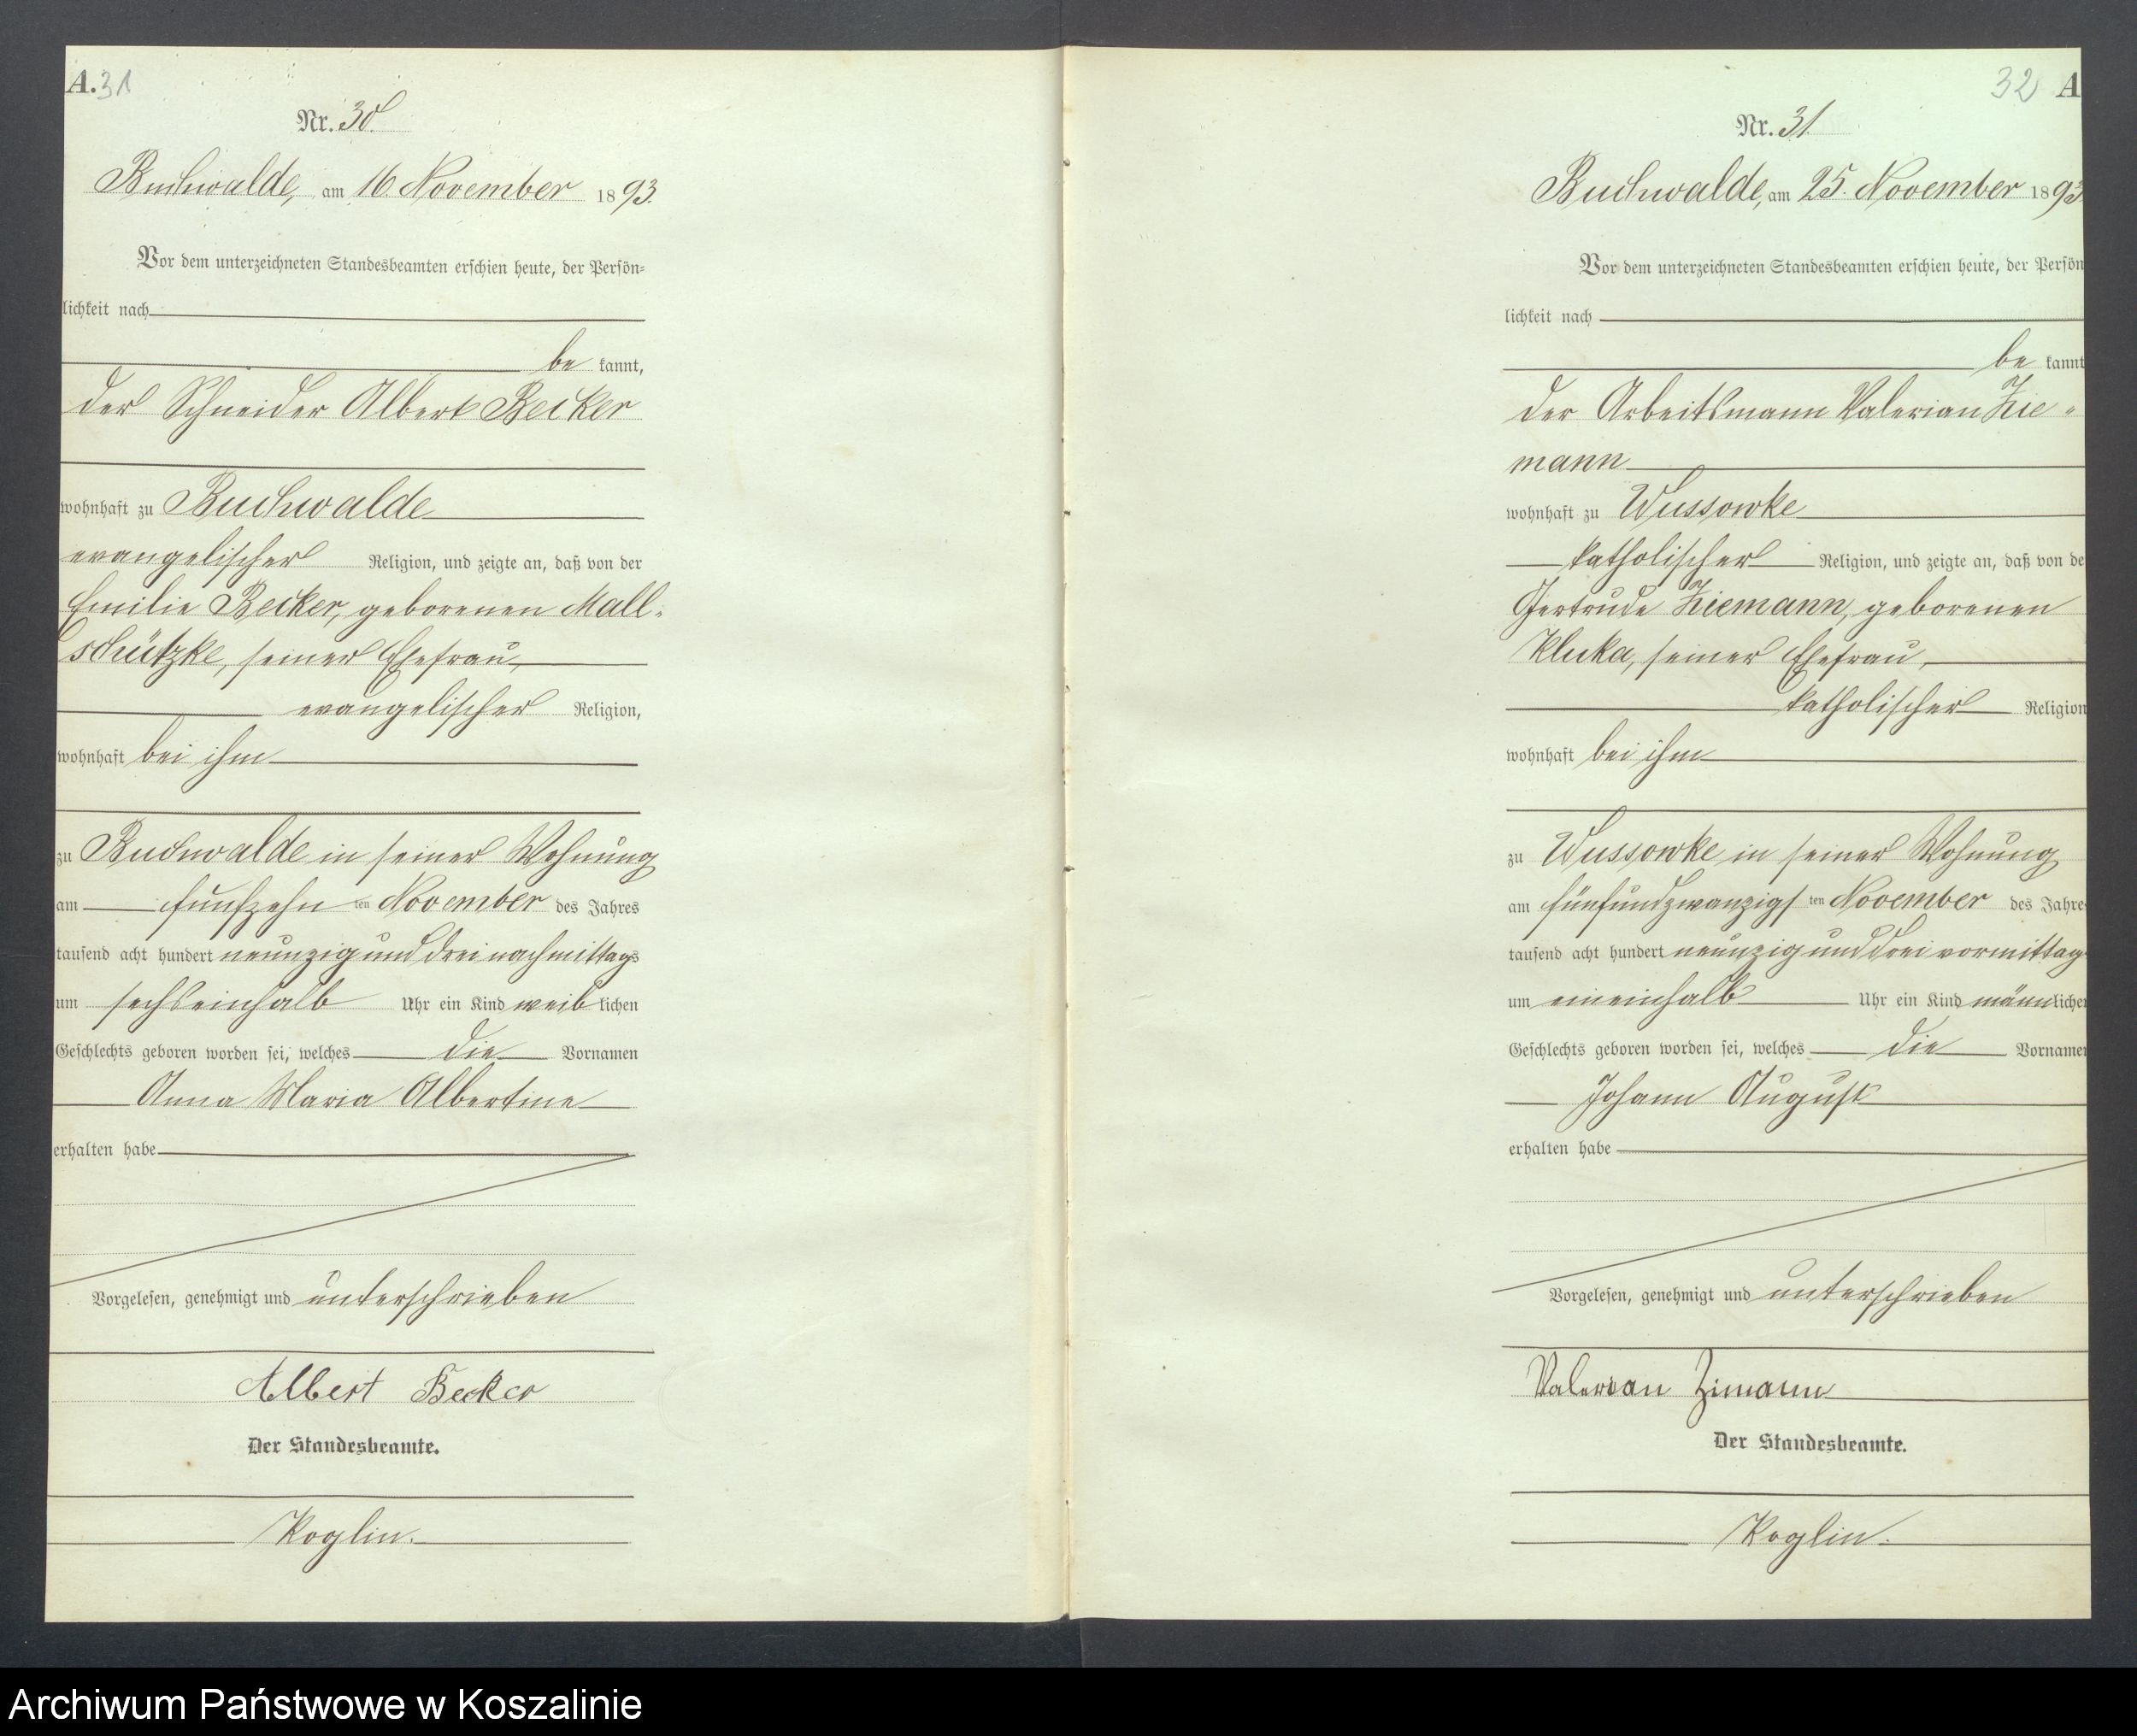 A. 31
Nr. 30.
Buchwalde, am 16. November 1893.
Vor dem unterzeichneten Standesbeamten erschien heute, der Persön-
lichkeit nach
be kannt,
der Schneider Albert Becker
wohnhaft zu Buchwalde
evangelischer Religion, und zeigte an, daß von der
Emilie Becker, geborenen Mall-
schützke, seiner Ehefrau,
evangelischer Religion,
wohnhaft bei ihm
zu Buchwalde in seiner Wohnung
am fünfzehn ten November des Jahres
tausend acht hundert neunzig und drei nachmittags
um sechseinhalb Uhr ein Kind weib lichen
Geschlechts geboren worden sei, welches die Vornamen
Anna Maria Albertine
erhalten habe
Vorgelesen, genehmigt und unterschrieben
Albert Becker
Der Standesbeamte.
Koglin.
32 A
Nr. 31.
Buchwalde, am 25. November 1893
Vor dem unterzeichneten Standesbeamten erschien heute, der Persön
lichkeit nach
be kannt
der Arbeitsmann Valerian Zie-
mann
wohnhaft zu Wussowke
katholischer Religion, und zeigte an, daß von de
Gertrude Ziemann, geborenen
Kluka, seiner Ehefrau,
katholischer Religion
wohnhaft bei ihm
zu Wussowke in seiner Wohnung
am fünfundzwanzigs ten November des Jahre
tausend acht hundert neunzig und drei vormittag
um eineinhalb Uhr ein Kind männ liche
Geschlechts geboren worden sei, welches die Vorname
Johann August
erhalten habe
Vorgelesen, genehmigt und unterschrieben
Valerian Zimann
Der Standesbeamte.
Koglin.
Archiwum Państwowe w Koszalinie